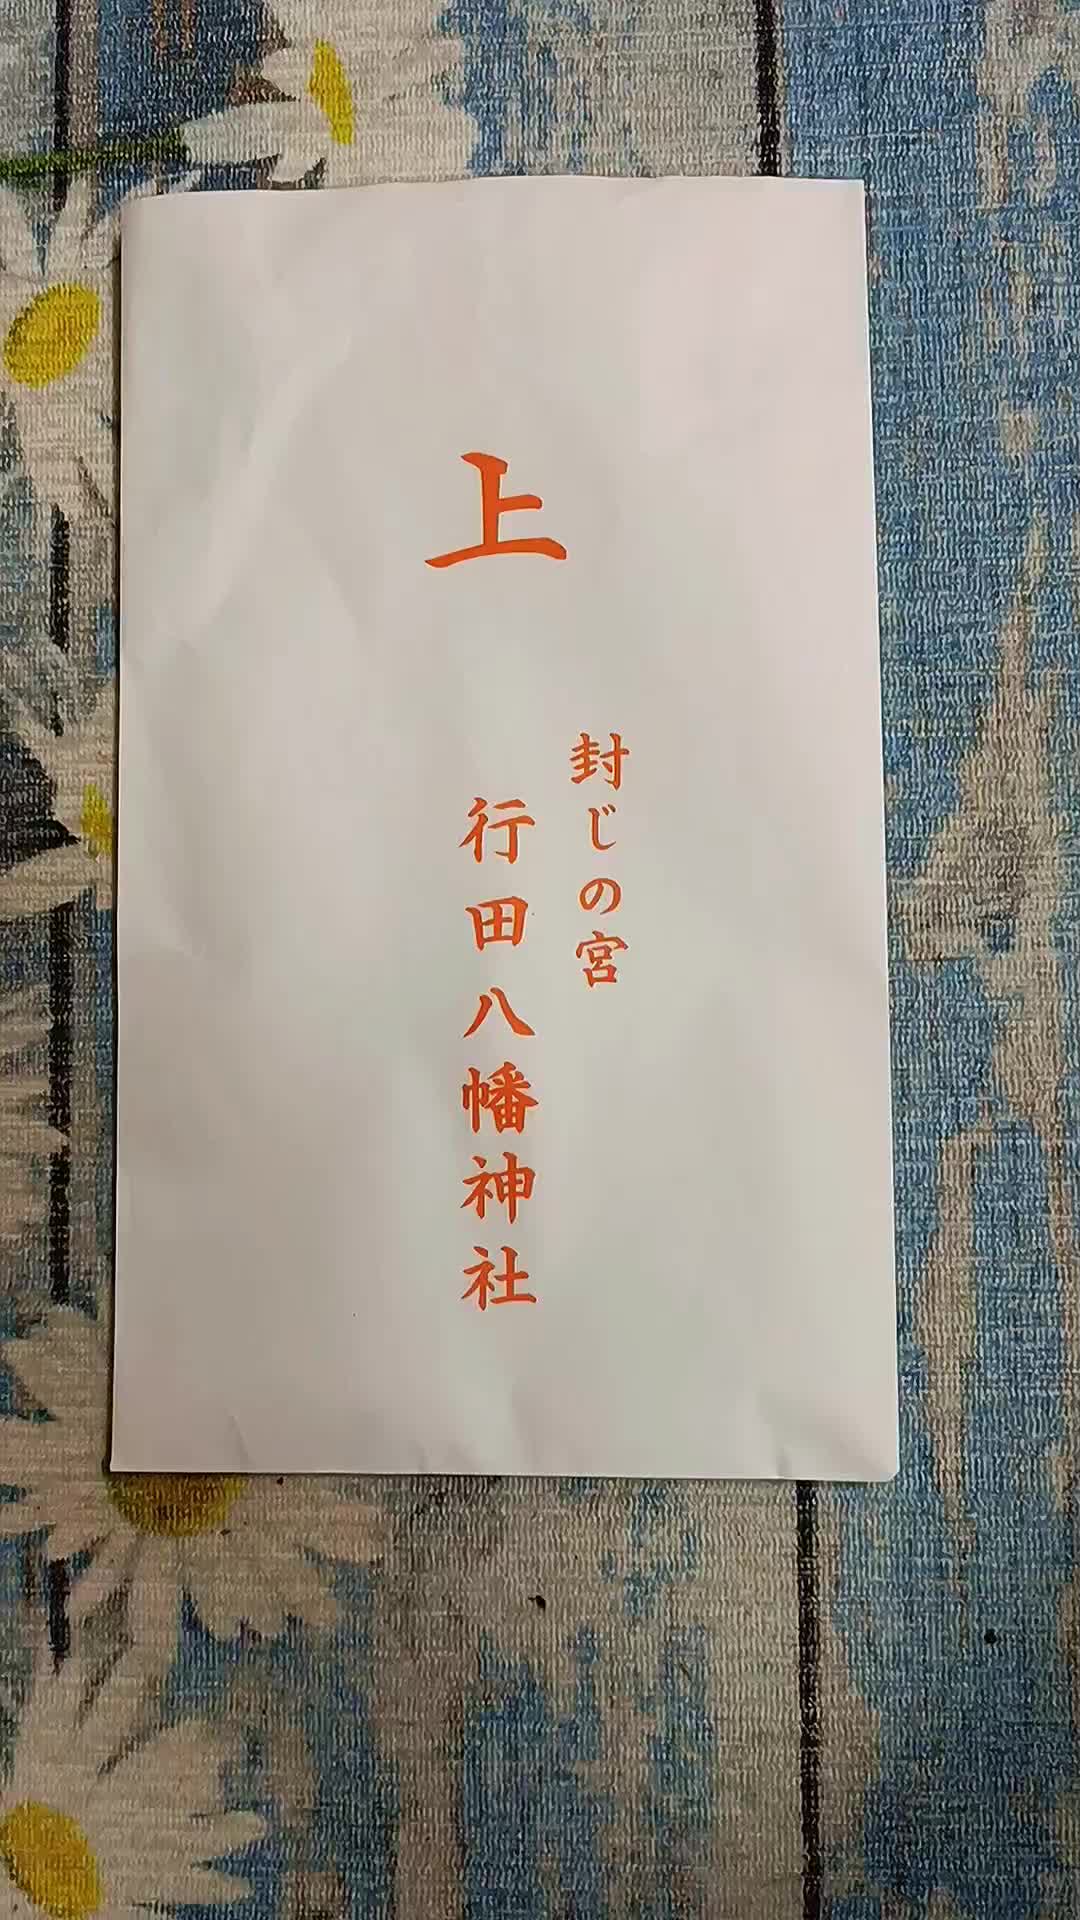 上
封じの宮
行田八幡神社